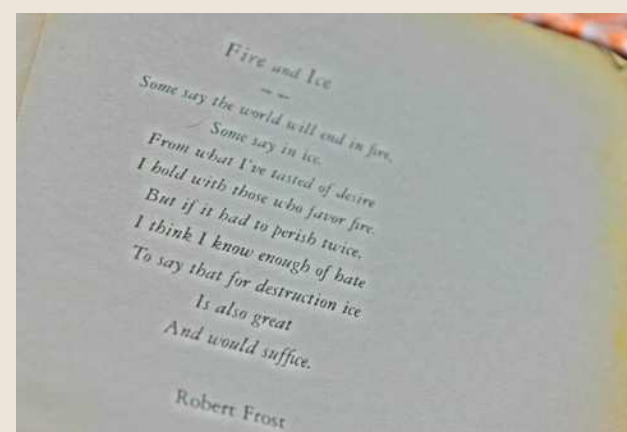 Fire and Ice
Some say the world will end in fire,
Some say in ice.
From what I've tasted of desire
I hold with those who favor fire.
But if it had to perish twice,
I think I know enough of hate
To say that for destruction ice
Is also great
And would suffice.
Robert Frost